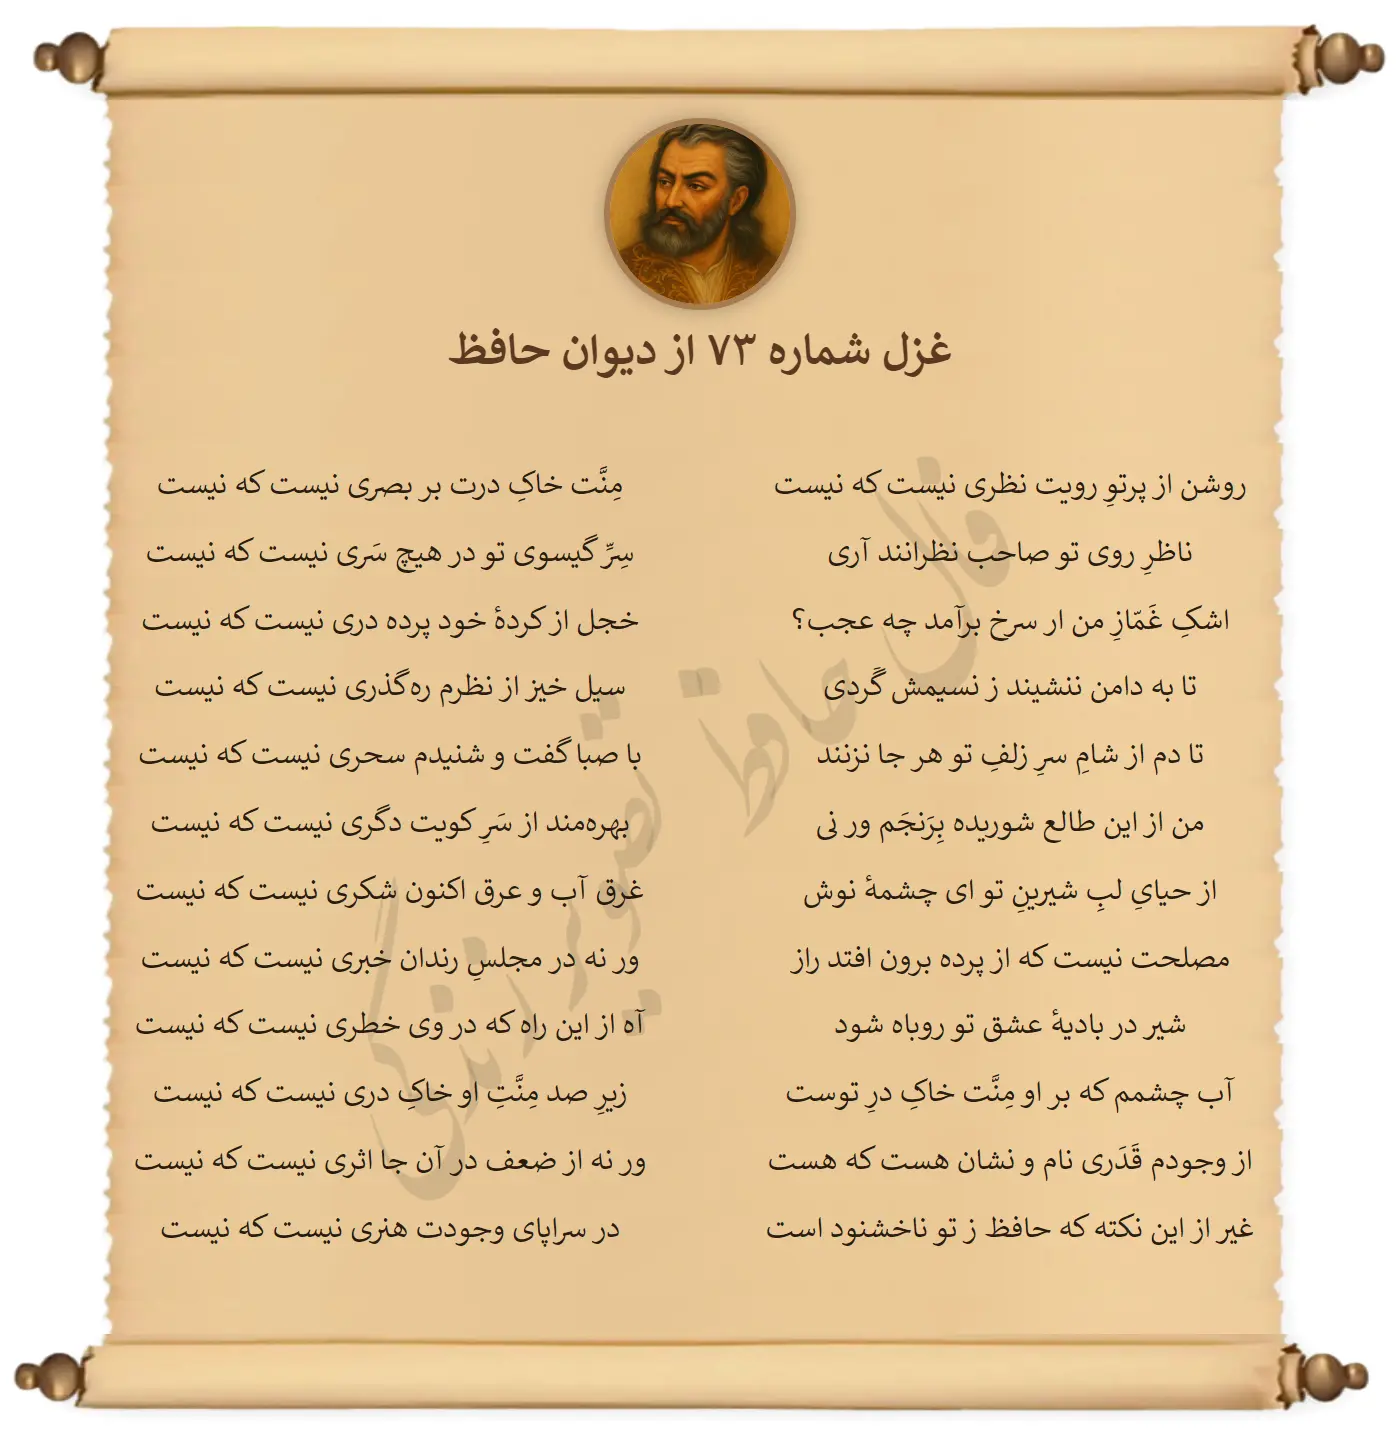 غزل شماره ۷۳ از دیوان حافظ
روشن از پرتوِ رویت نظری نیست که نیست
مِنَّت خاکِ درت بر بصری نیست که نیست
ناظرِ روی تو صاحب نظرانند آری
سِرِّ گیسوی تو در هیچ سَری نیست که نیست
اشکِ غَمّازِ من ار سرخ برآمد چه عجب؟
خجل از کردهٔ خود پرده دری نیست که نیست
تا به دامن ننشیند ز نسیمش گَردی
سیل خیز از نظرم ره‌گذری نیست که نیست
تا دم از شامِ سرِ زلفِ تو هر جا نزنند
با صبا گفت و شنیدم سحری نیست که نیست
من از این طالع شوریده بِرَنجَم ور نی
بهره‌مند از سَرِ کویت دگری نیست که نیست
از حیایِ لبِ شیرینِ تو ای چشمهٔ نوش
غرق آب و عرق اکنون شکری نیست که نیست
مصلحت نیست که از پرده برون افتد راز
ور نه در مجلسِ رندان خبری نیست که نیست
شیر در بادیهٔ عشق تو روباه شود
آه از این راه که در وی خطری نیست که نیست
آب چشمم که بر او مِنَّت خاکِ درِ توست
زیرِ صد مِنَّتِ او خاکِ دری نیست که نیست
از وجودم قَدَری نام و نشان هست که هست
ور نه از ضعف در آن جا اثری نیست که نیست
غیر از این نکته که حافظ ز تو ناخشنود است
در سراپای وجودت هنری نیست که نیست
فال حافظ تصویر زندگی